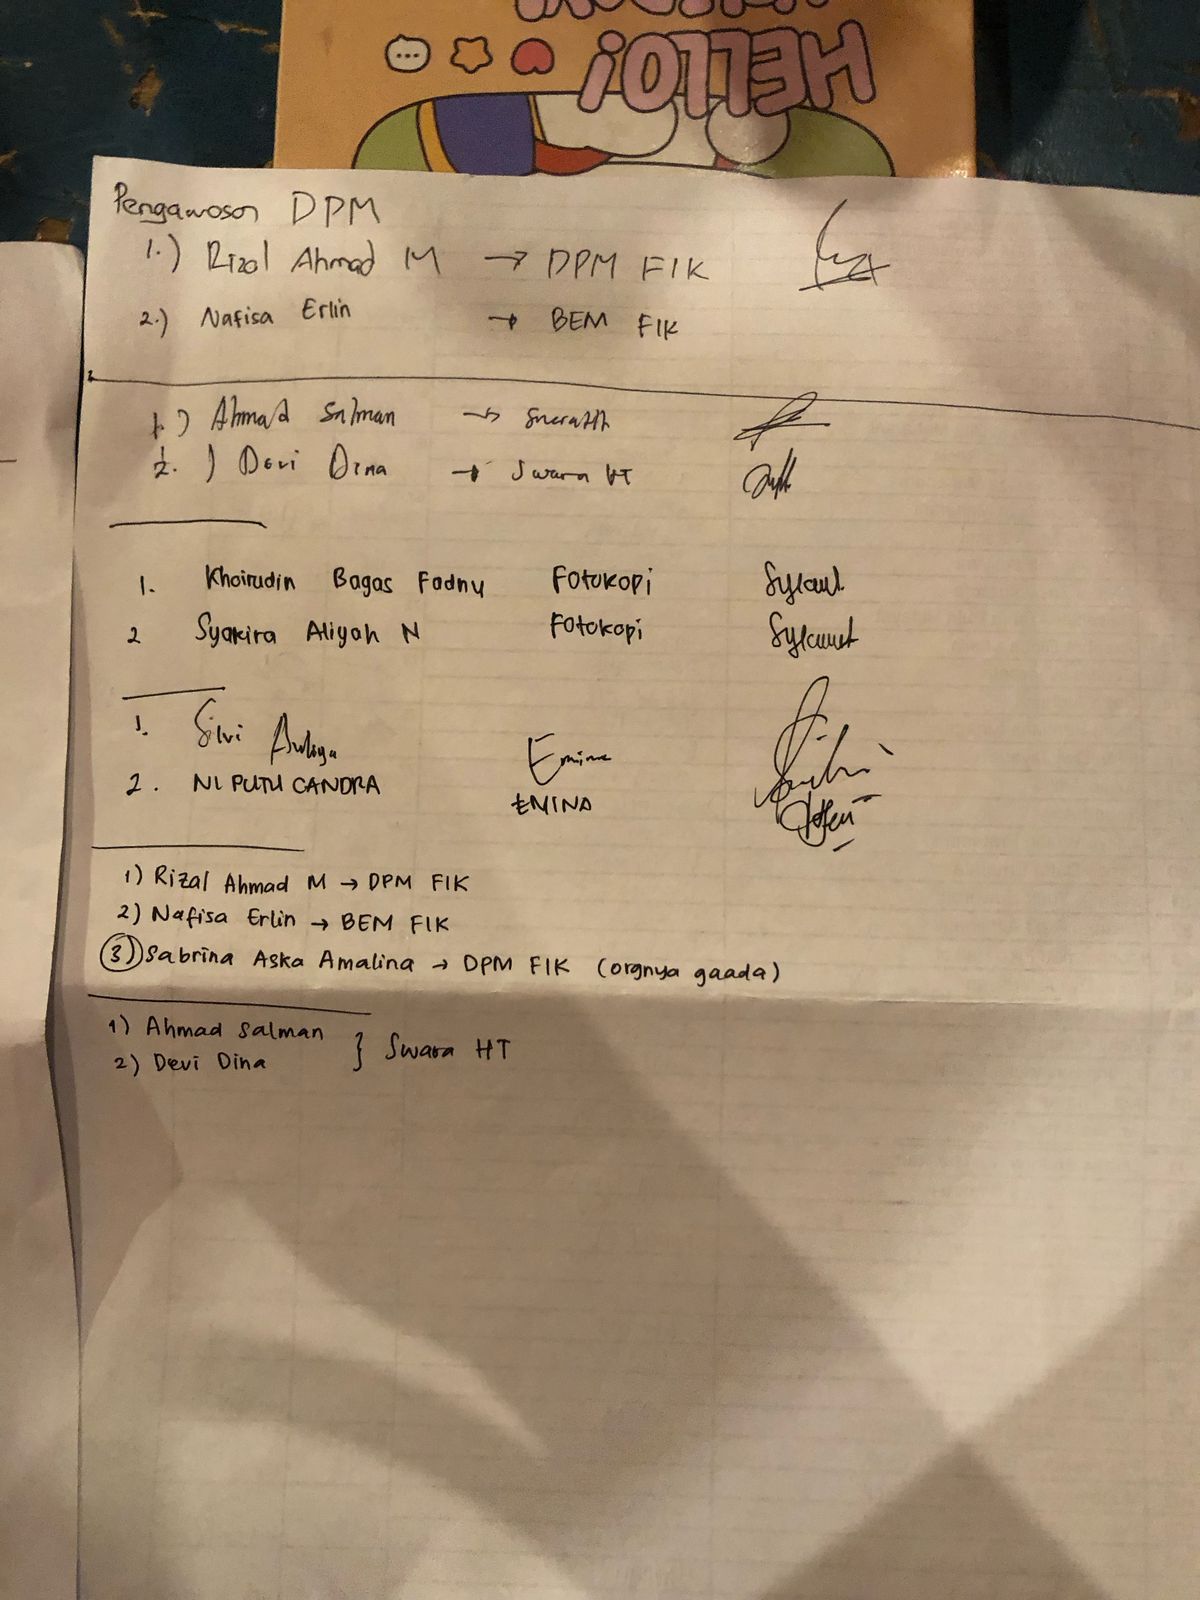 HELLO!
Pengawasan DPM
1.) Rizal Ahmad M → DPM FIK
2.) Nafisa Erlin → BEM FIK
1.) Ahmad Salman →
2.) Devi Dina → Swara HT
1. Khoirudin Bagas Fadnu Fotokopi
2 Syakira Aliyah N Fotokopi
1. Silvi Auliya Emina
2. NI PUTU CANDRA EMINA
1) Rizal Ahmad M → DPM FIK
2) Nafisa Erlin → BEM FIK
3) Sabrina Aska Amalina → DPM FIK (orgnya gaada)
1) Ahmad Salman
2) Devi Dina } Swara HT